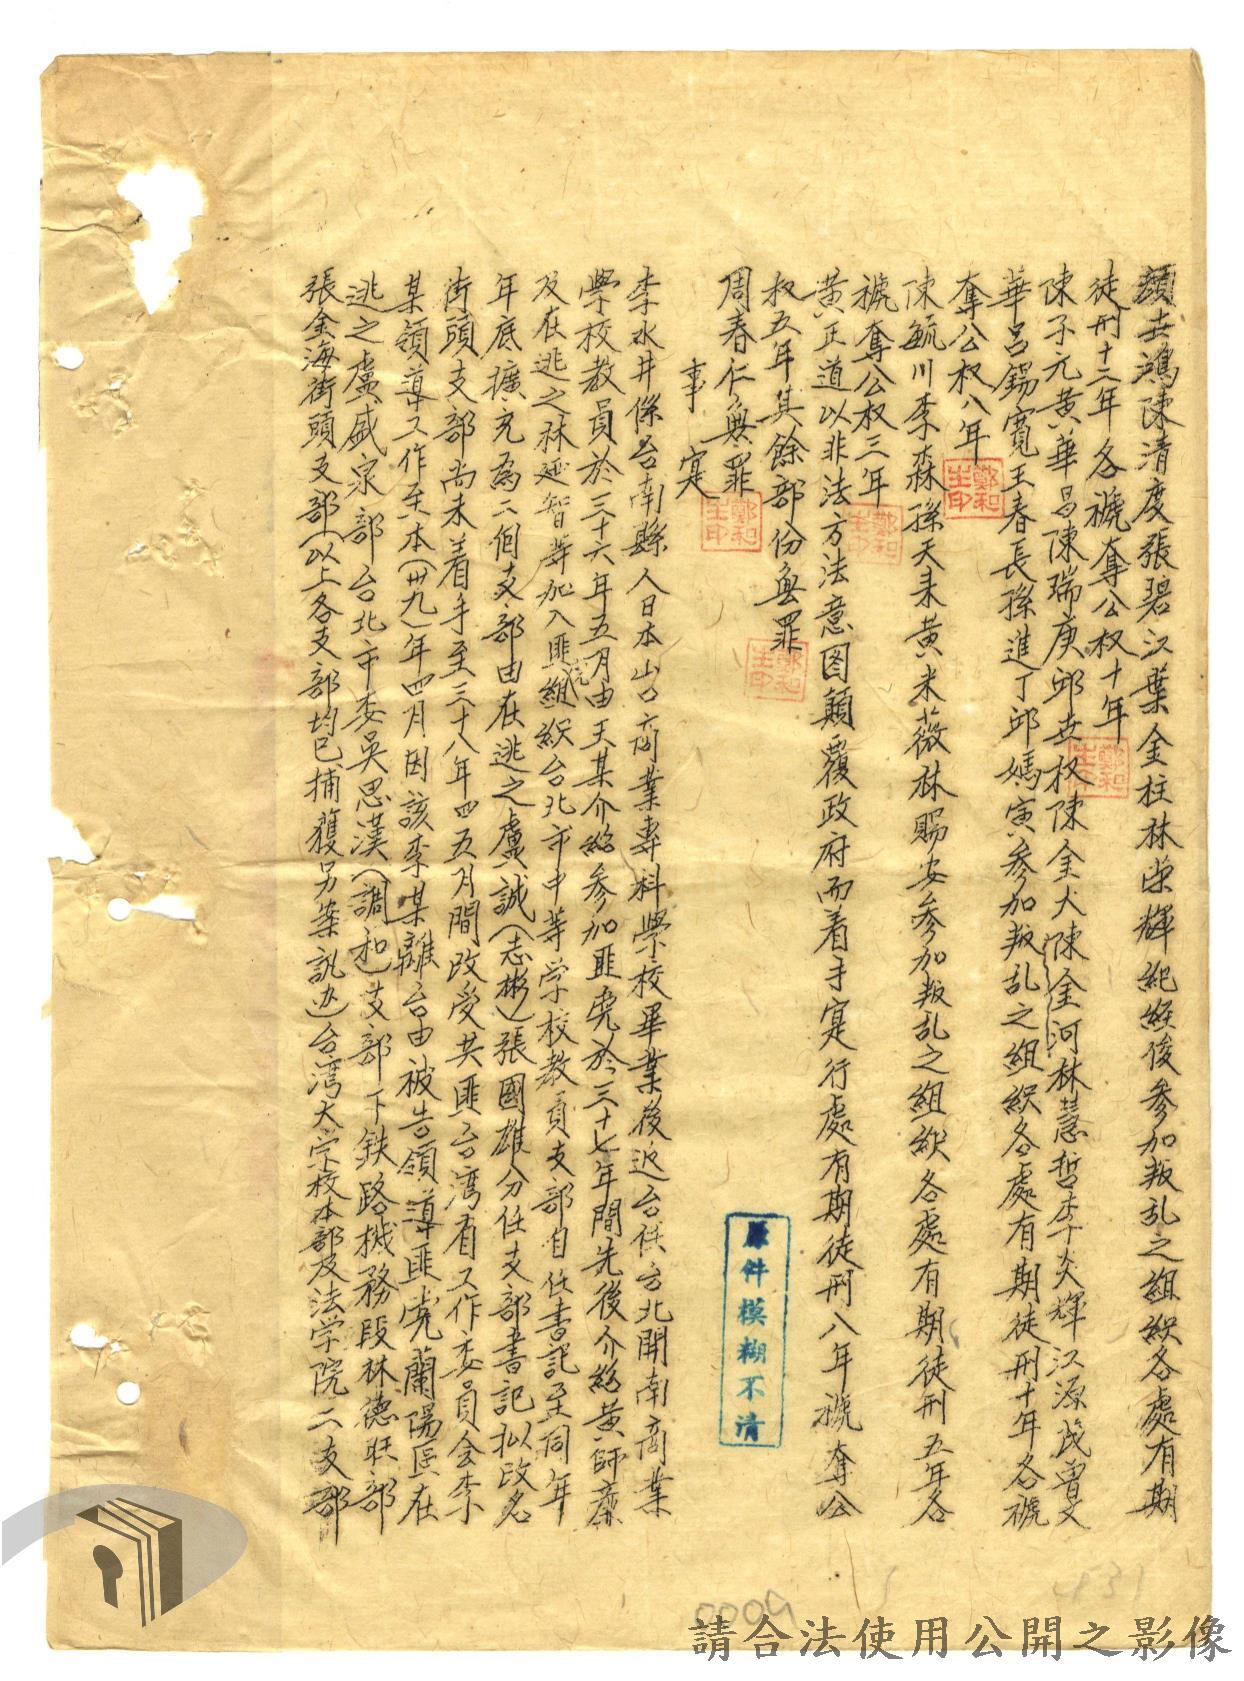 顏世鴻陳清度張碧江葉金柱林榮輝紀經俊參加叛乱之組织各處有期
徒刑十二年各褫奪公权十年
陳子元黃華昌陳瑞庚邱世权陳金火陳金河林慧哲李炎輝江源茂曾文
華呂錫寬王春長孫進丁邱媽寅參加叛乱之組织各處有期徒刑十年各褫
奪公权八年
陳毓川李森孫天来黃米薇林賜安參加叛乱之組织各處有期徒刑五年各
褫奪公权三年
黃正道以非法方法意图顛覆政府而着手寔行處有期徒刑八年褫奪公
权五年其餘部份無罪
周春仁無罪
事寔
李水井係台南縣人日本山口商業專科學校畢業後返台任台北開南商業
學校教員於三十六年五月由王某介紹參加匪党於三十七年間先後介紹黃師廉
及在逃之林延智等加入匪党組织台北市中等学校教員支部自任書記至同年
年底擴充為二個支部由在逃之盧誠(志彬)張國雄分任支部書記拟改名
街頭支部尚未着手至三十八年四五月間改受共匪台湾省工作委員会李
某領導工作至本(卅九)年四月因該李某離台由被告領導匪党蘭陽區在
逃之盧盛泉部台北市委吳思漢(調和)支部下鉄路機務段林德旺部
張金海街頭支部(以上各支部均已捕獲另案訊办)台湾大学校本部及法学院二支部
鄭和生印
鄭和生印
鄭和生印
鄭和生印
鄭和生印
原件模糊不清
0009
請合法使用公開之影像